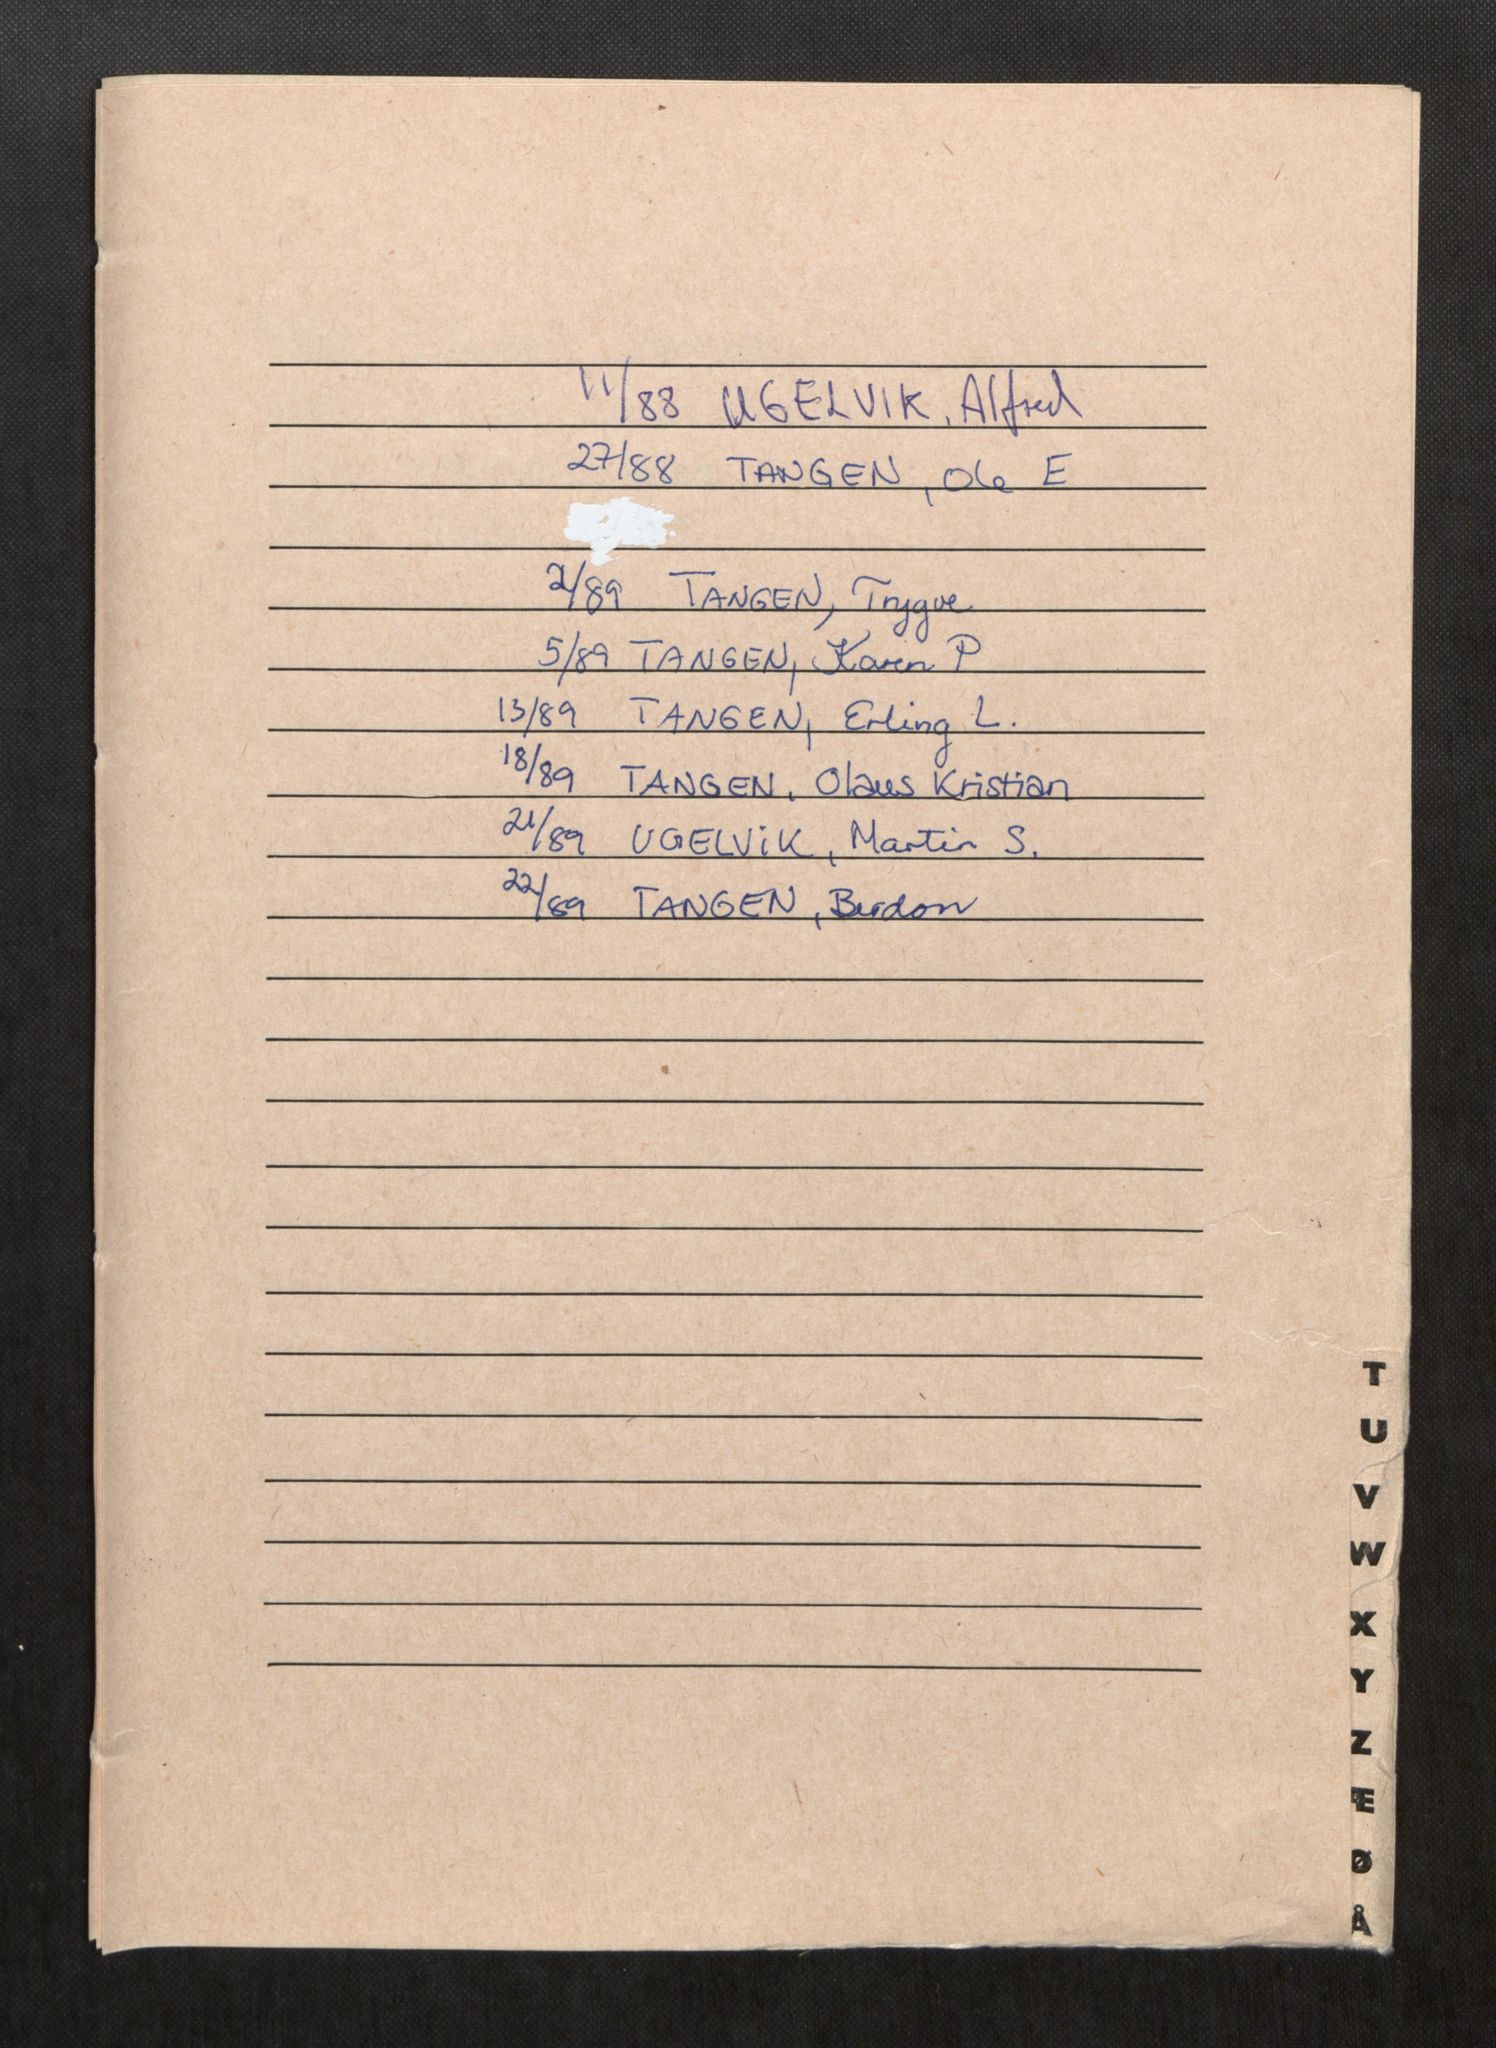 11/88 UGELVIK, Alfred
27/88 TANGEN, Ole E
2/89 TANGEN, Trygve
5/89 TANGEN, Karen P
13/89 TANGEN, Erling L.
18/89 TANGEN, Olaus Kristian
21/89 UGELVIK, Martin S.
22/89 TANGEN, Berdon
T
U
V
W
X
Y
Z
Æ
Ø
Å